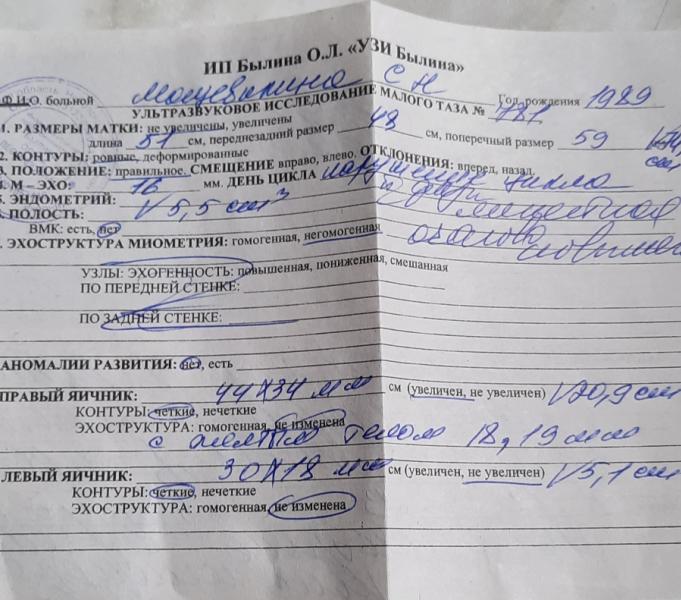 ИП Былина О.Л. «УЗИ Былина»
Ф.И.О. больной С Н Год рождения 1989
УЛЬТРАЗВУКОВОЕ ИССЛЕДОВАНИЕ МАЛОГО ТАЗА № 781
1. РАЗМЕРЫ МАТКИ: не увеличены, увеличены
длина 51 см, переднезадний размер 43 см, поперечный размер 59
2. КОНТУРЫ: ровные, деформированные
3. ПОЛОЖЕНИЕ: правильное. СМЕЩЕНИЕ вправо, влево. ОТКЛОНЕНИЯ: вперед, назад.
4. М – ЭХО: 16 мм. ДЕНЬ ЦИКЛА нарушение цикла
5. ЭНДОМЕТРИЙ: V 5,5 см³
6. ПОЛОСТЬ:
ВМК: есть, нет
ЭХОСТРУКТУРА МИОМЕТРИЯ: гомогенная, негомогенная
УЗЛЫ: ЭХОГЕННОСТЬ: повышенная, пониженная, смешанная
ПО ПЕРЕДНЕЙ СТЕНКЕ:
ПО ЗАДНЕЙ СТЕНКЕ:
АНОМАЛИИ РАЗВИТИЯ: нет, есть
ПРАВЫЙ ЯИЧНИК: 44х34 мм см (увеличен, не увеличен) V 20,9 см
КОНТУРЫ: четкие, нечеткие
ЭХОСТРУКТУРА: гомогенная, не изменена
с желтым телом 18,19 мм
ЛЕВЫЙ ЯИЧНИК: 30х18 мм см (увеличен, не увеличен) V 5,1 см
КОНТУРЫ: четкие, нечеткие
ЭХОСТРУКТУРА: гомогенная, не изменена